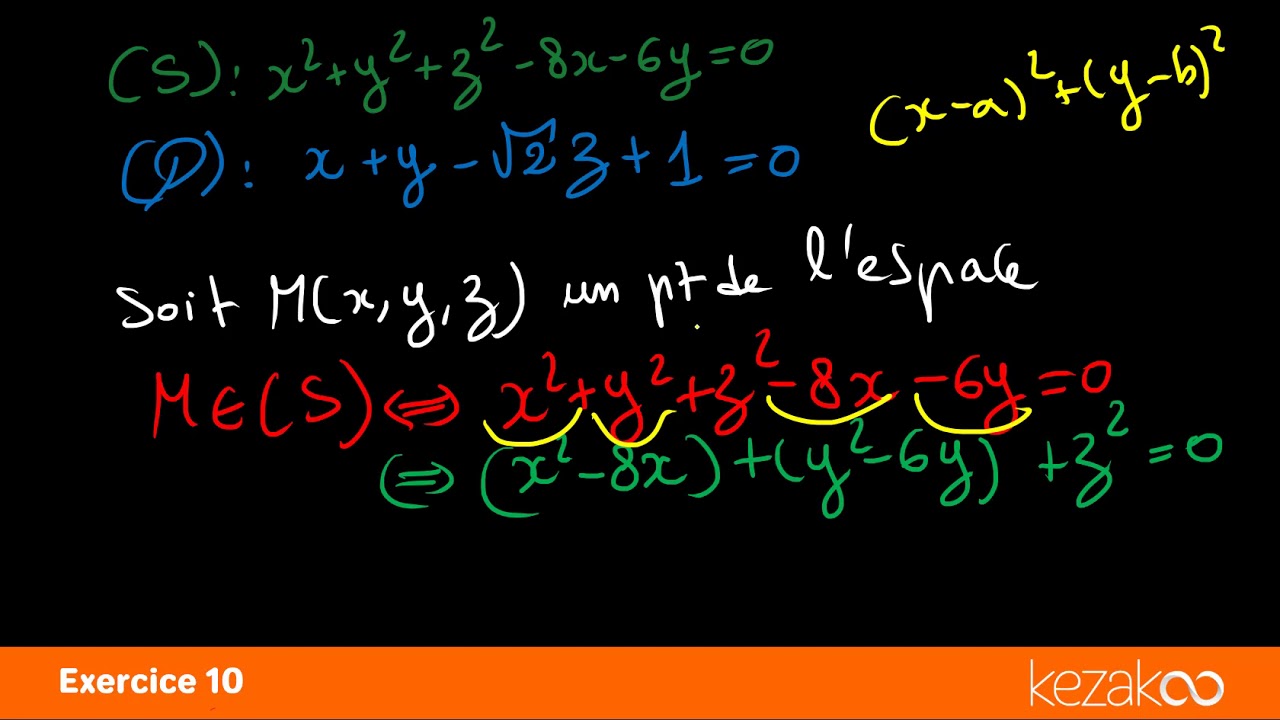 (S): x²+y²+z²-8x-6y=0
(x-a)²+(y-b)²
(P): x+y-√2z+1=0
Soit M(x,y,z) un pt de l'espace
M∈(S)⇔ x²+y²+z²-8x-6y=0
⇔ (x²-8x)+(y²-6y)+z²=0
Exercice 10
kezakoo